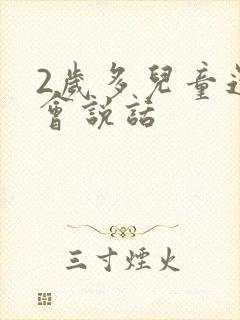 2歲多兒童
會說話
三寸煙火